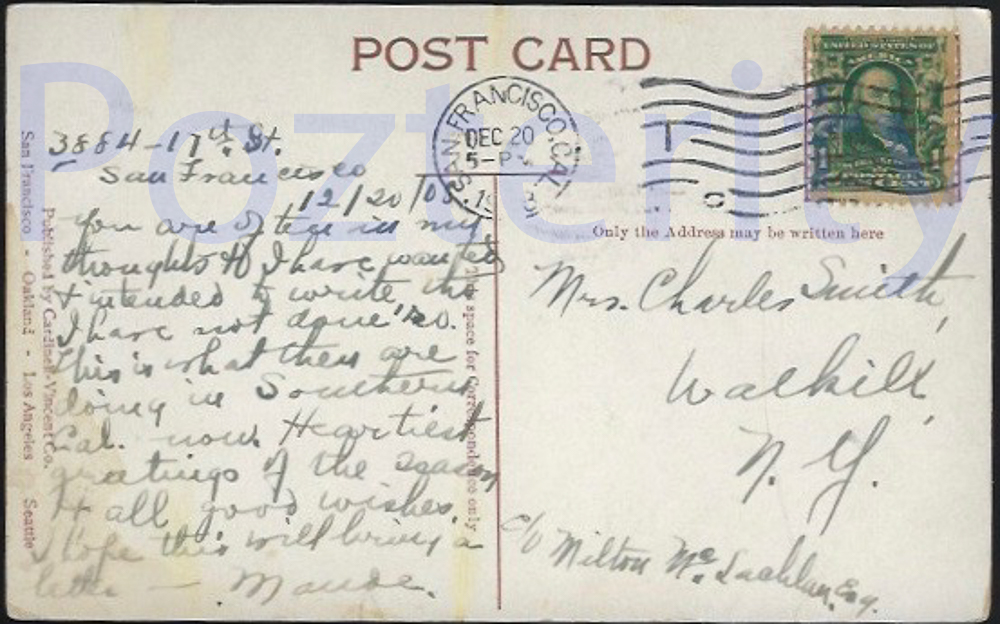 POST CARD
UNITED STATES OF
AMERICA
SAN FRANCISCO, CAL.
DEC 20
5-P
Pozterity
3884-17th. St.
San Francisco
12/20/08.
You are often in my
thoughts & I have wanted
& intended to write, tho
I have not done so.
This is what they are
doing in Southern
Cal. now. Heartiest
greetings of the season
& all good wishes.
Hope this will bring a
letter — Maude.
San Francisco - Oakland - Los Angeles Seattle
Published by Cardinell-Vincent Co.
This space for Correspondence only
Only the Address may be written here
Mrs. Charles Smith,
Walkill,
N. Y.
c/o Milton Mc. Lachlan, Esq.